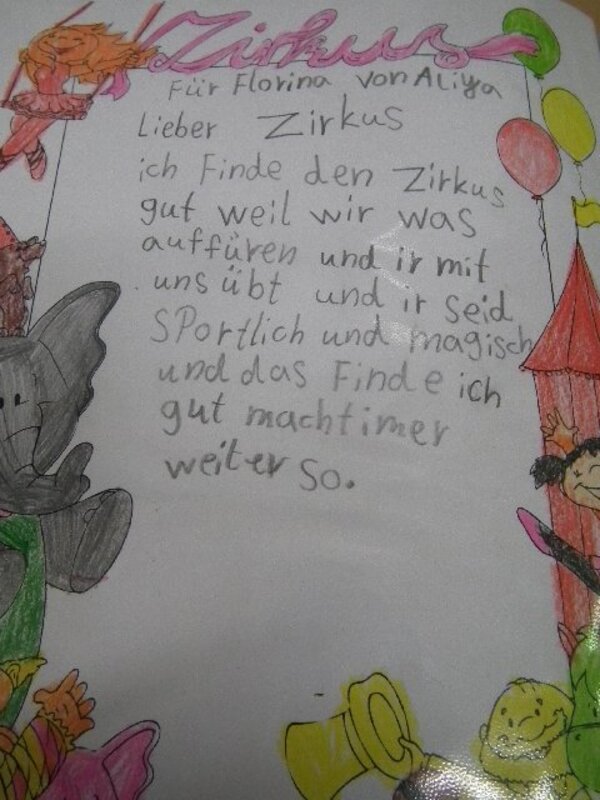 Zirkus
Für Florina von Aliya
Lieber Zirkus
ich Finde den Zirkus
gut weil wir was
aufführen und ir mit
uns übt und ir seid
SPortlich und magisch
und das Finde ich
gut macht imer
weiter so.